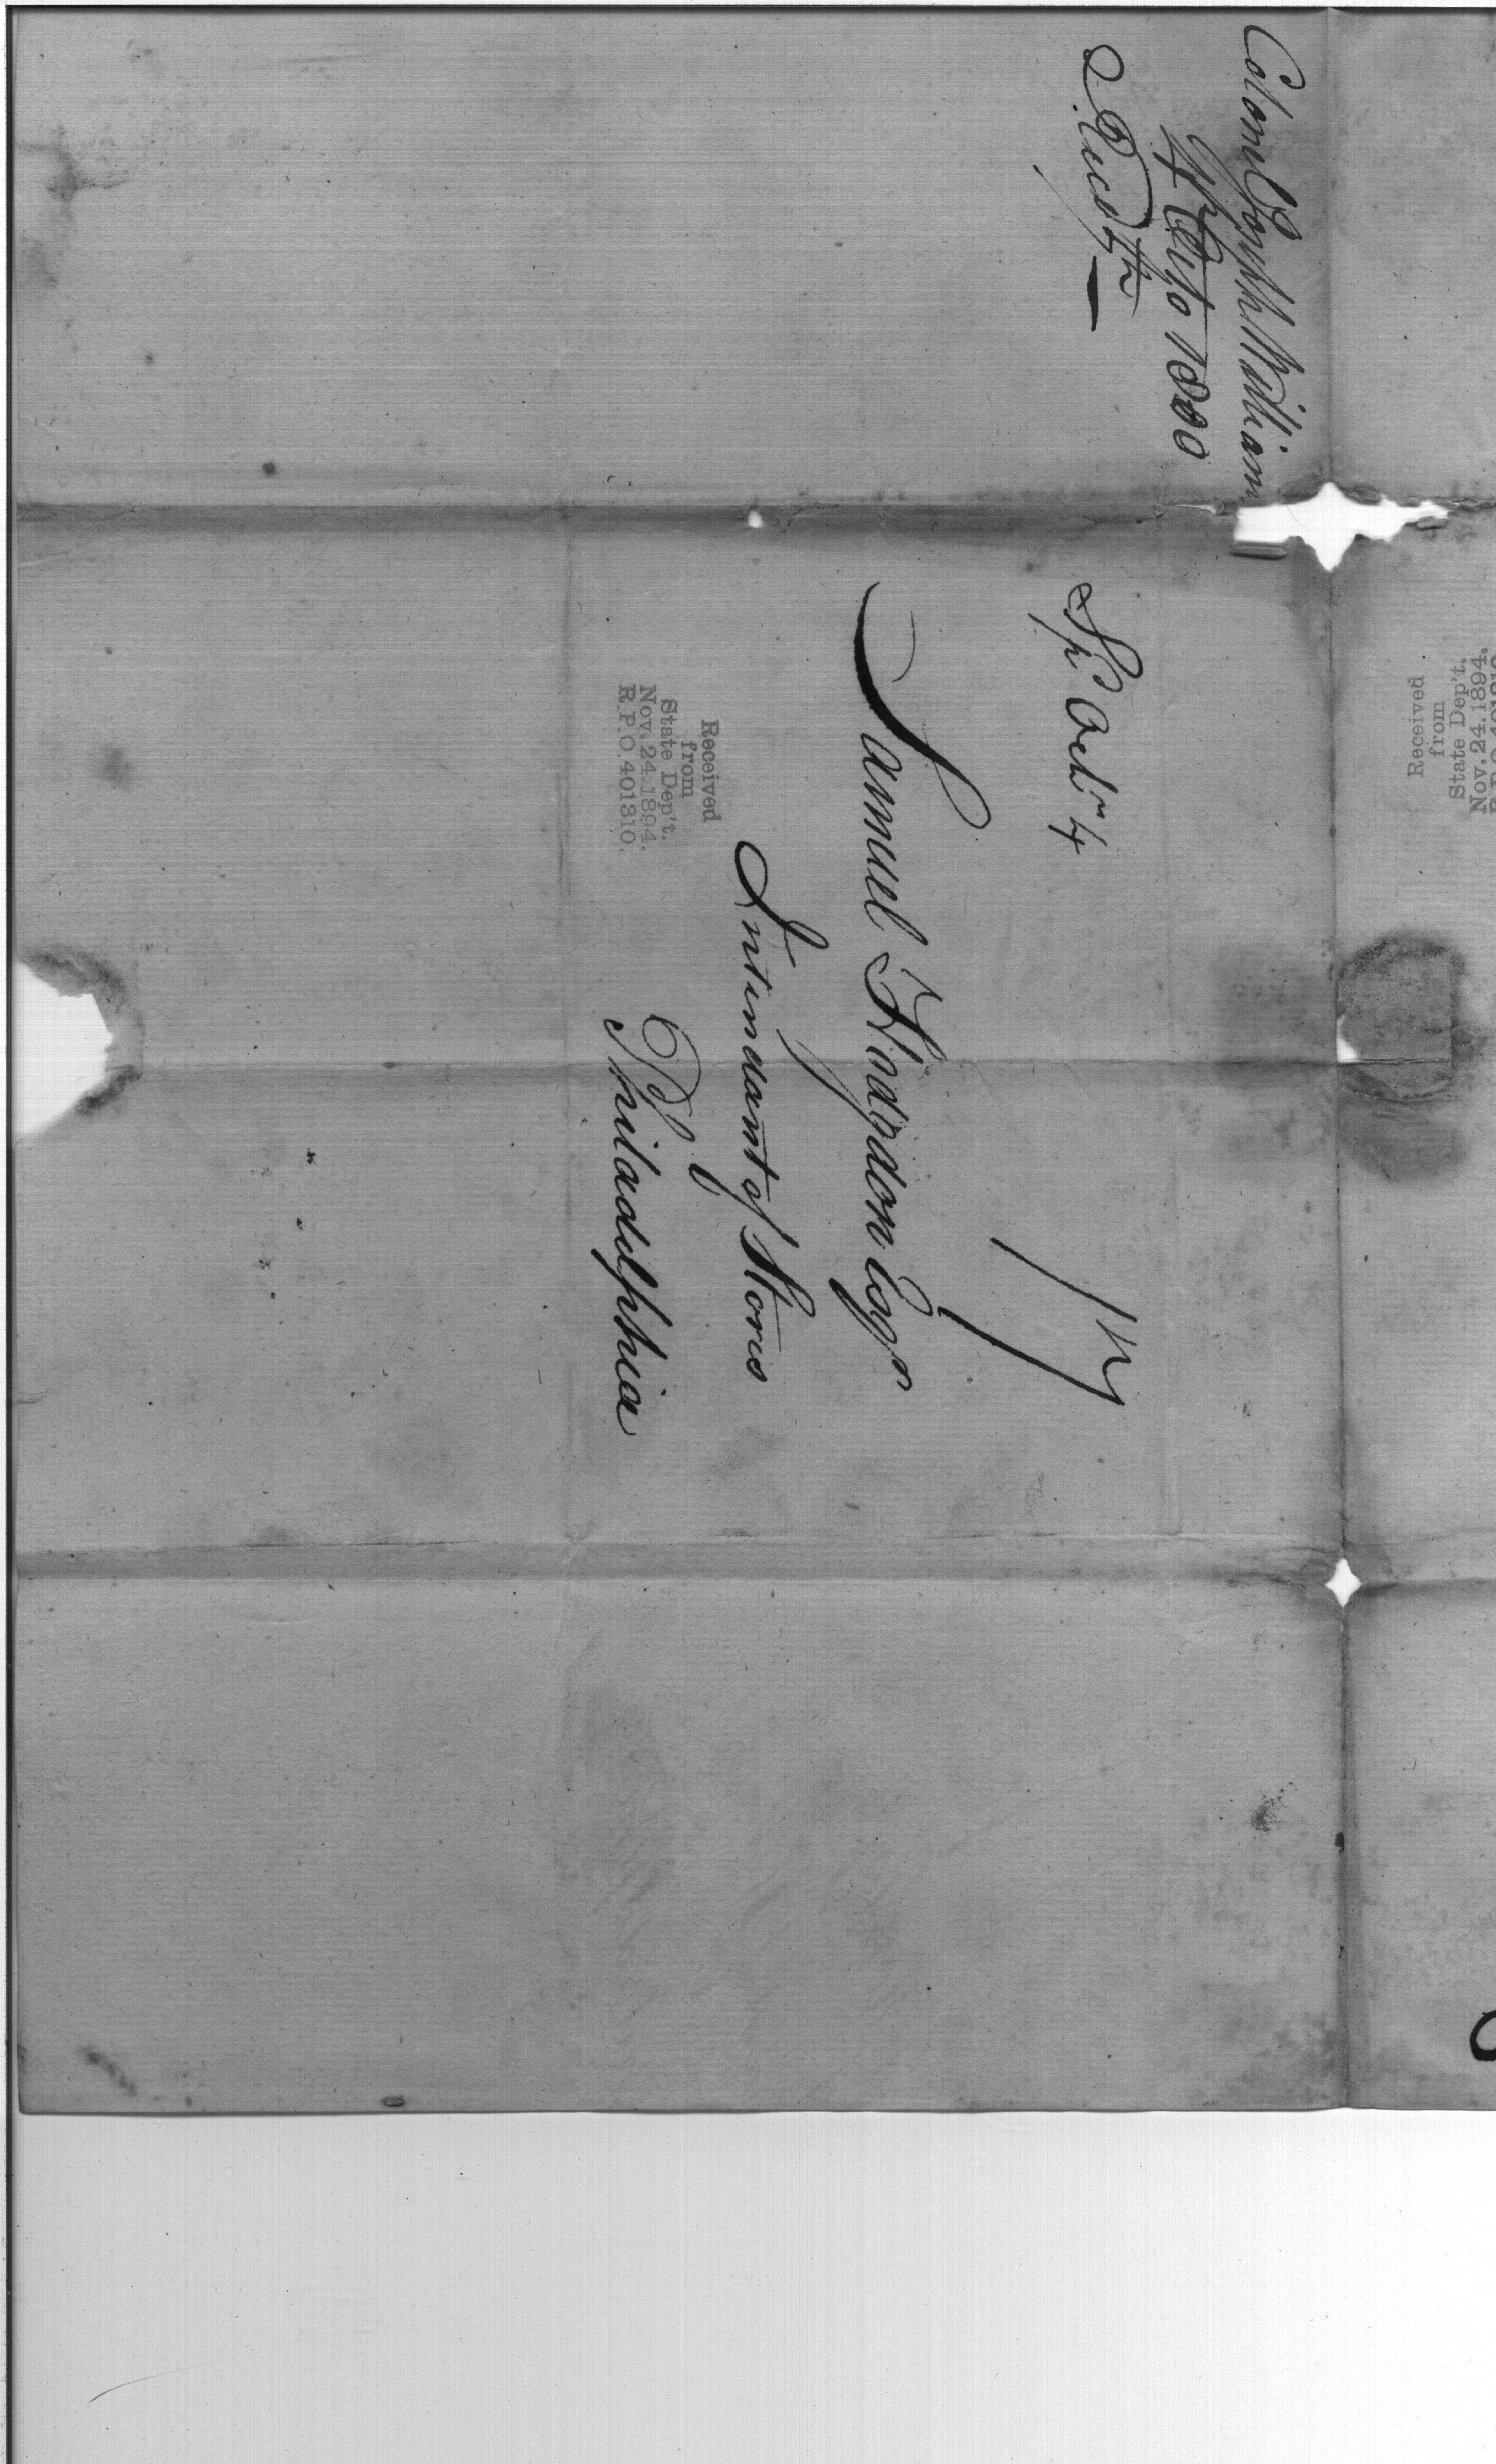 Colonel Joseph William
4 Octo 1800
Sp. Octr. 4
17
Samuel Hodgdon Esqr
Intendant of Stores
Philadelphia
Received
from
State Dep't.
Nov. 24. 1894.
R.P.O. 401310.
Received
from
State Dep't.
Nov. 24. 1894.